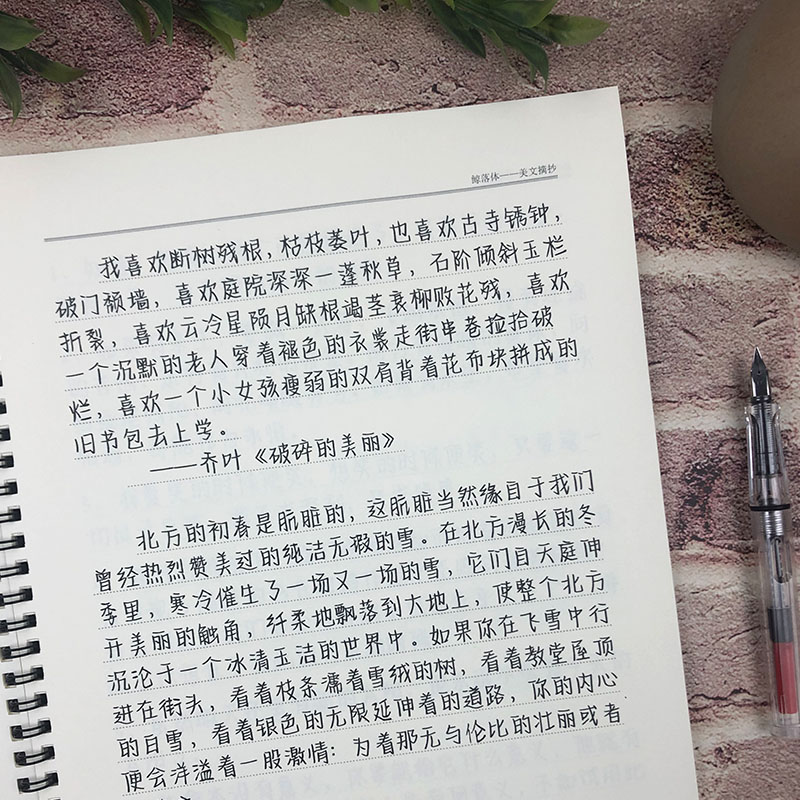 鲸落体——美文摘抄
我喜欢断树残根，枯枝萎叶，也喜欢古寺锈钟，
破门颓墙，喜欢庭院深深一蓬秋草，石阶倾斜玉栏
折裂，喜欢云冷星陨月缺根竭茎衰柳败花残，喜欢
一个沉默的老人穿着褪色的衣裳走街串巷捡拾破
烂，喜欢一个小女孩瘦弱的双肩背着花布块拼成的
旧书包去上学。
——乔叶《破碎的美丽》
北方的初春是肮脏的，这肮脏当然缘自于我们
曾经热烈赞美过的纯洁无瑕的雪。在北方漫长的冬
季里，寒冷催生了一场又一场的雪，它们自天庭伸
开美丽的触角，纤柔地飘落到大地上，使整个北方
沉沦于一个冰清玉洁的世界中。如果你在飞雪中行
进在街头，看着枝条濡着雪绒的树，看着教堂屋顶
的白雪，看着银色的无限延伸着的道路，你的内心
便会洋溢着一股激情：为着那无与伦比的壮丽或者